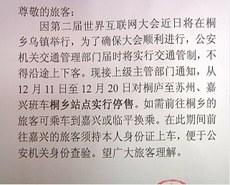 尊敬的旅客:
因第二届世界互联网大会近日将在桐
乡乌镇举行，为了确保大会顺利进行，公安
机关交通管理部门届时将实行交通管制，不
得沿途上下客。现接上级主管部门通知，从
12 月 11 日至 12 月 20 日对桐庐至苏州、嘉
兴班车桐乡站点实行停售。如需前往桐乡的
旅客可乘车到嘉兴或临平换乘。在此期间前
往嘉兴的旅客须持本人身份证上车，便于公
安机关身份查验。望广大旅客理解。